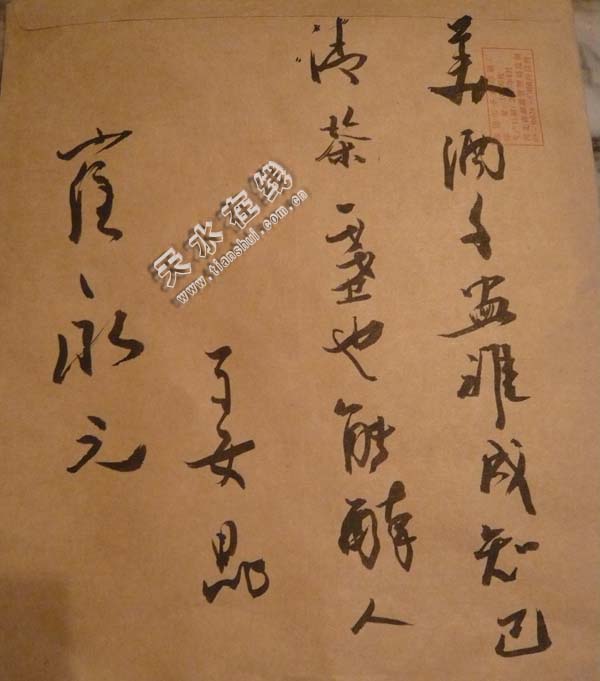 美酒千盅难成知己
清茶一盏也能醉人
崔永元
天水在线
www.tianshui.com.cn